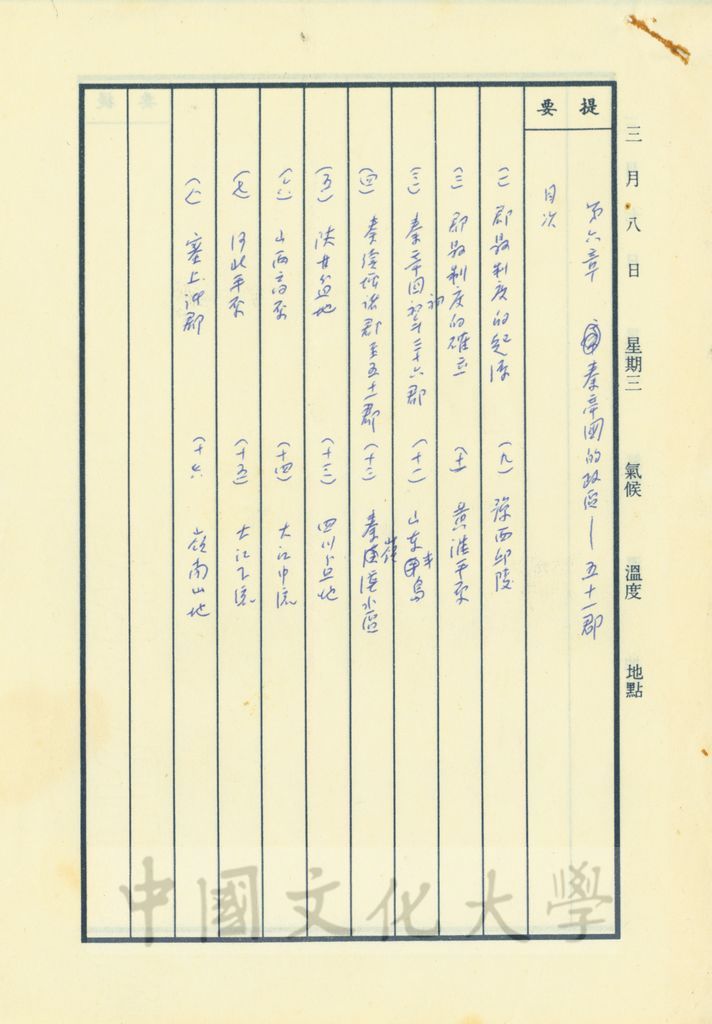 三月八日 星期三 氣候 溫度 地點
提要
第六章 秦帝國的政區—五十一郡
目次
(一) 郡縣制度的起源
(二) 郡縣制度的確立
(三) 秦帝國初年三十六郡
(四) 秦續增諸郡至五十一郡
(五) 陝甘盆地
(六) 山西高原
(七) 河北平原
(八) 塞上諸郡
(九) 豫西邱陵
(十) 黃淮平原
(十一) 山東半島
(十二) 秦嶺漢水區
(十三) 四川盆地
(十四) 大江中流
(十五) 大江下流
(十六) 嶺南山地
中國文化大學